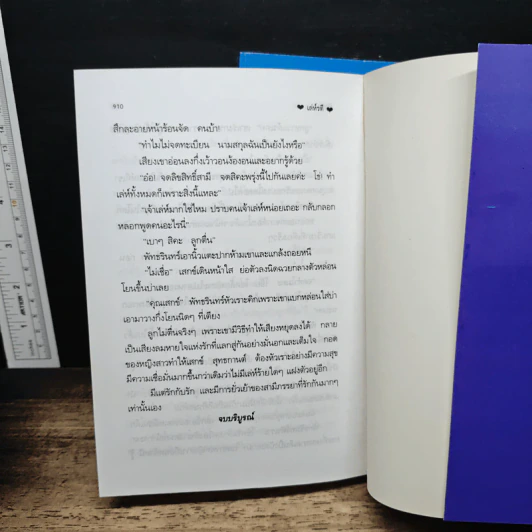 910
เล่ห์รตี
สึกละอายหน้าร้อนจัด คนบ้า!
"ทำไมไม่จดทะเบียน นามสกุลฉันเป็นยังไงหรือ"
เสียงเขาอ่อนลงกึ่งเว้าวอนง้องอนและอยากรู้ด้วย
"อ๋อ! จดลิขสิทธิ์สามี จดสิคะพรุ่งนี้ไปกันเลยค่ะ โธ่! ทำ
เล่ห์ทั้งหมดก็เพราะสิ่งนี้แหละ"
"เจ้าเล่ห์มากใช่ไหม ปราบคนเจ้าเล่ห์หน่อยเถอะ กลับกลอก
หลอกพูดคนอะไรนี่"
"เบาๆ สิคะ ลูกตื่น"
พัทธรินทร์เอานิ้วแตะปากห้ามเขาและแกล้งถอยหนี
"ไม่เชื่อ" เสกข์เดินหน้าใส ย่อตัวลงนิดฉวยกลางตัวหล่อน
โยนขึ้นบ่าเลย
"คุณเสกข์" พัทธรินทร์หัวเราะคิกเพราะเขาแบกหล่อนใส่บ่า
เอามาวางกึ่งโยนนิดๆ ที่เตียง
ลูกไม่ตื่นจริงๆ เพราะเขามีวิธีทำให้เสียงหยุดลงได้ กลาย
เป็นเสียงลมหายใจแห่งรักที่แลกสู่กันอย่างมั่นอกและเต็มใจ กอด
ของหญิงสาวทำให้เสกข์ สุทธกานต์ ต้องหัวเราะอย่างมีความสุข
มีความเชื่อมั่นมากขึ้นกว่าเดิมว่าไม่มีเล่ห์ร้ายใดๆ แฝงตัวอยู่อีก
มีแต่รักกับรัก และมีการยั่วเย้าของสามีภรรยาที่รักกันมากๆ
เท่านั้นเอง
จบบริบูรณ์